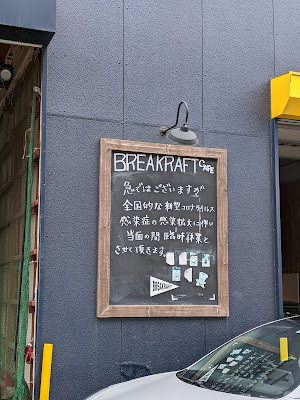 BREAKRAFT CAFE
急ではございますが
全国的な新型コロナウイルス
感染症の感染拡大に伴い
当面の間 臨時休業と
させて頂きます。
BREAKRAFT